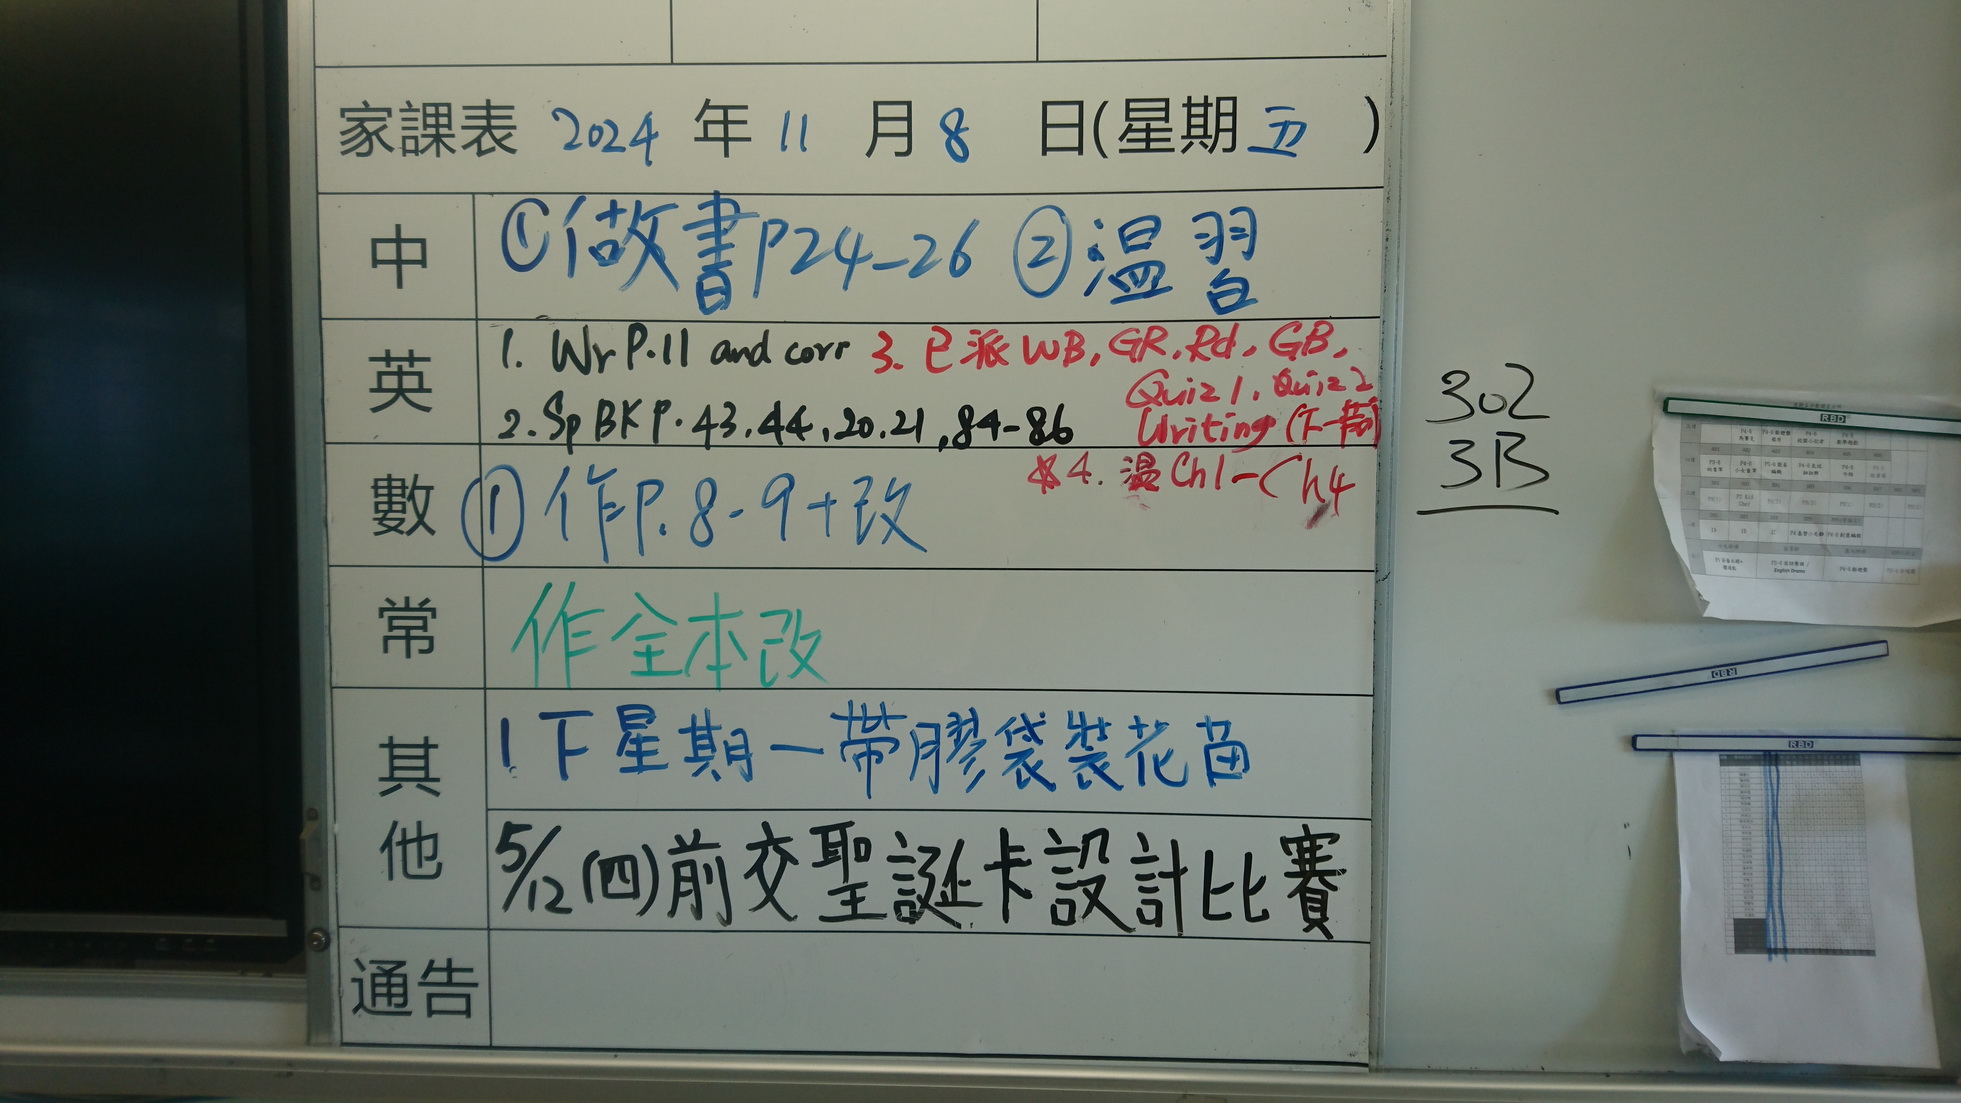 家課表 2024 年 11 月 8 日(星期 五 )
中 ①做書P24-26 ②温習
英 1. Wr P.11 and corr 3. 已派 WB, GR, Rd, GB,
Quiz 1, Quiz 2
2. Sp BK P. 43, 44, 20, 21, 84-86 Writing (下一篇)
*4. 温 Ch1-Ch4
數 ① 作P. 8-9+改
常 作全本改
其他 1. 下星期一帶膠袋裝花苗
5/12 (四)前交聖誕卡設計比賽
通告
302
3B
RBD
RBD
RBD